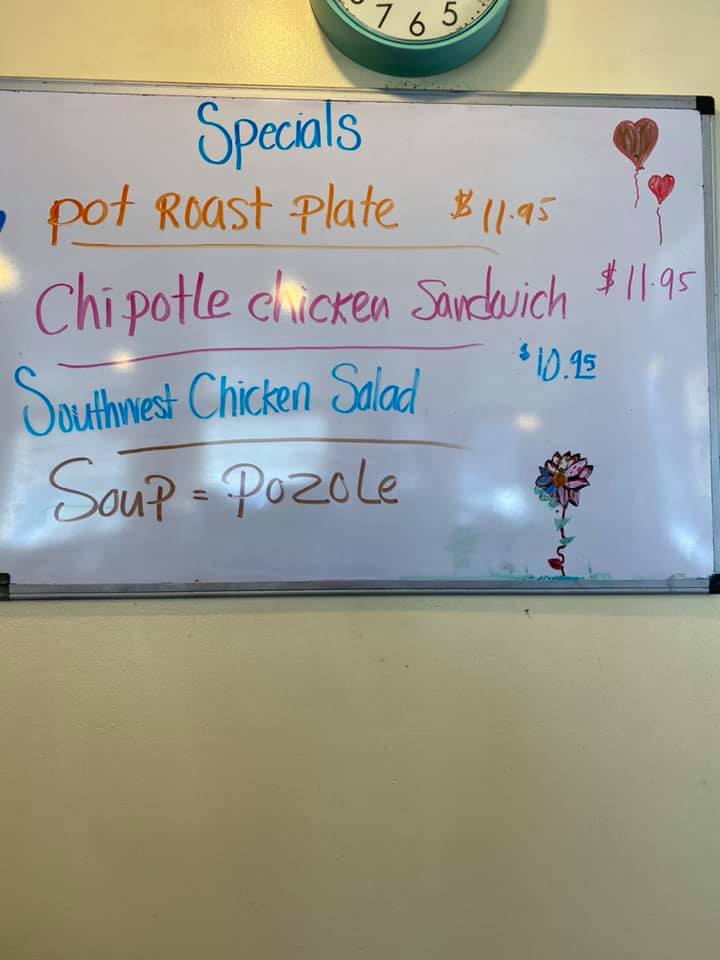 7 6 5
Specials
Pot Roast Plate $11.95
Chipotle chicken Sandwich $11.95
Southwest Chicken Salad $10.95
Soup = Pozole